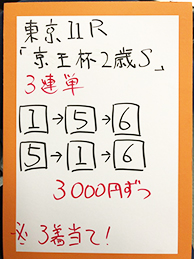 東京11R
「京王杯2歳S」
3連単
1→5→6
5→1→6
3000円ずつ
※3着当て!